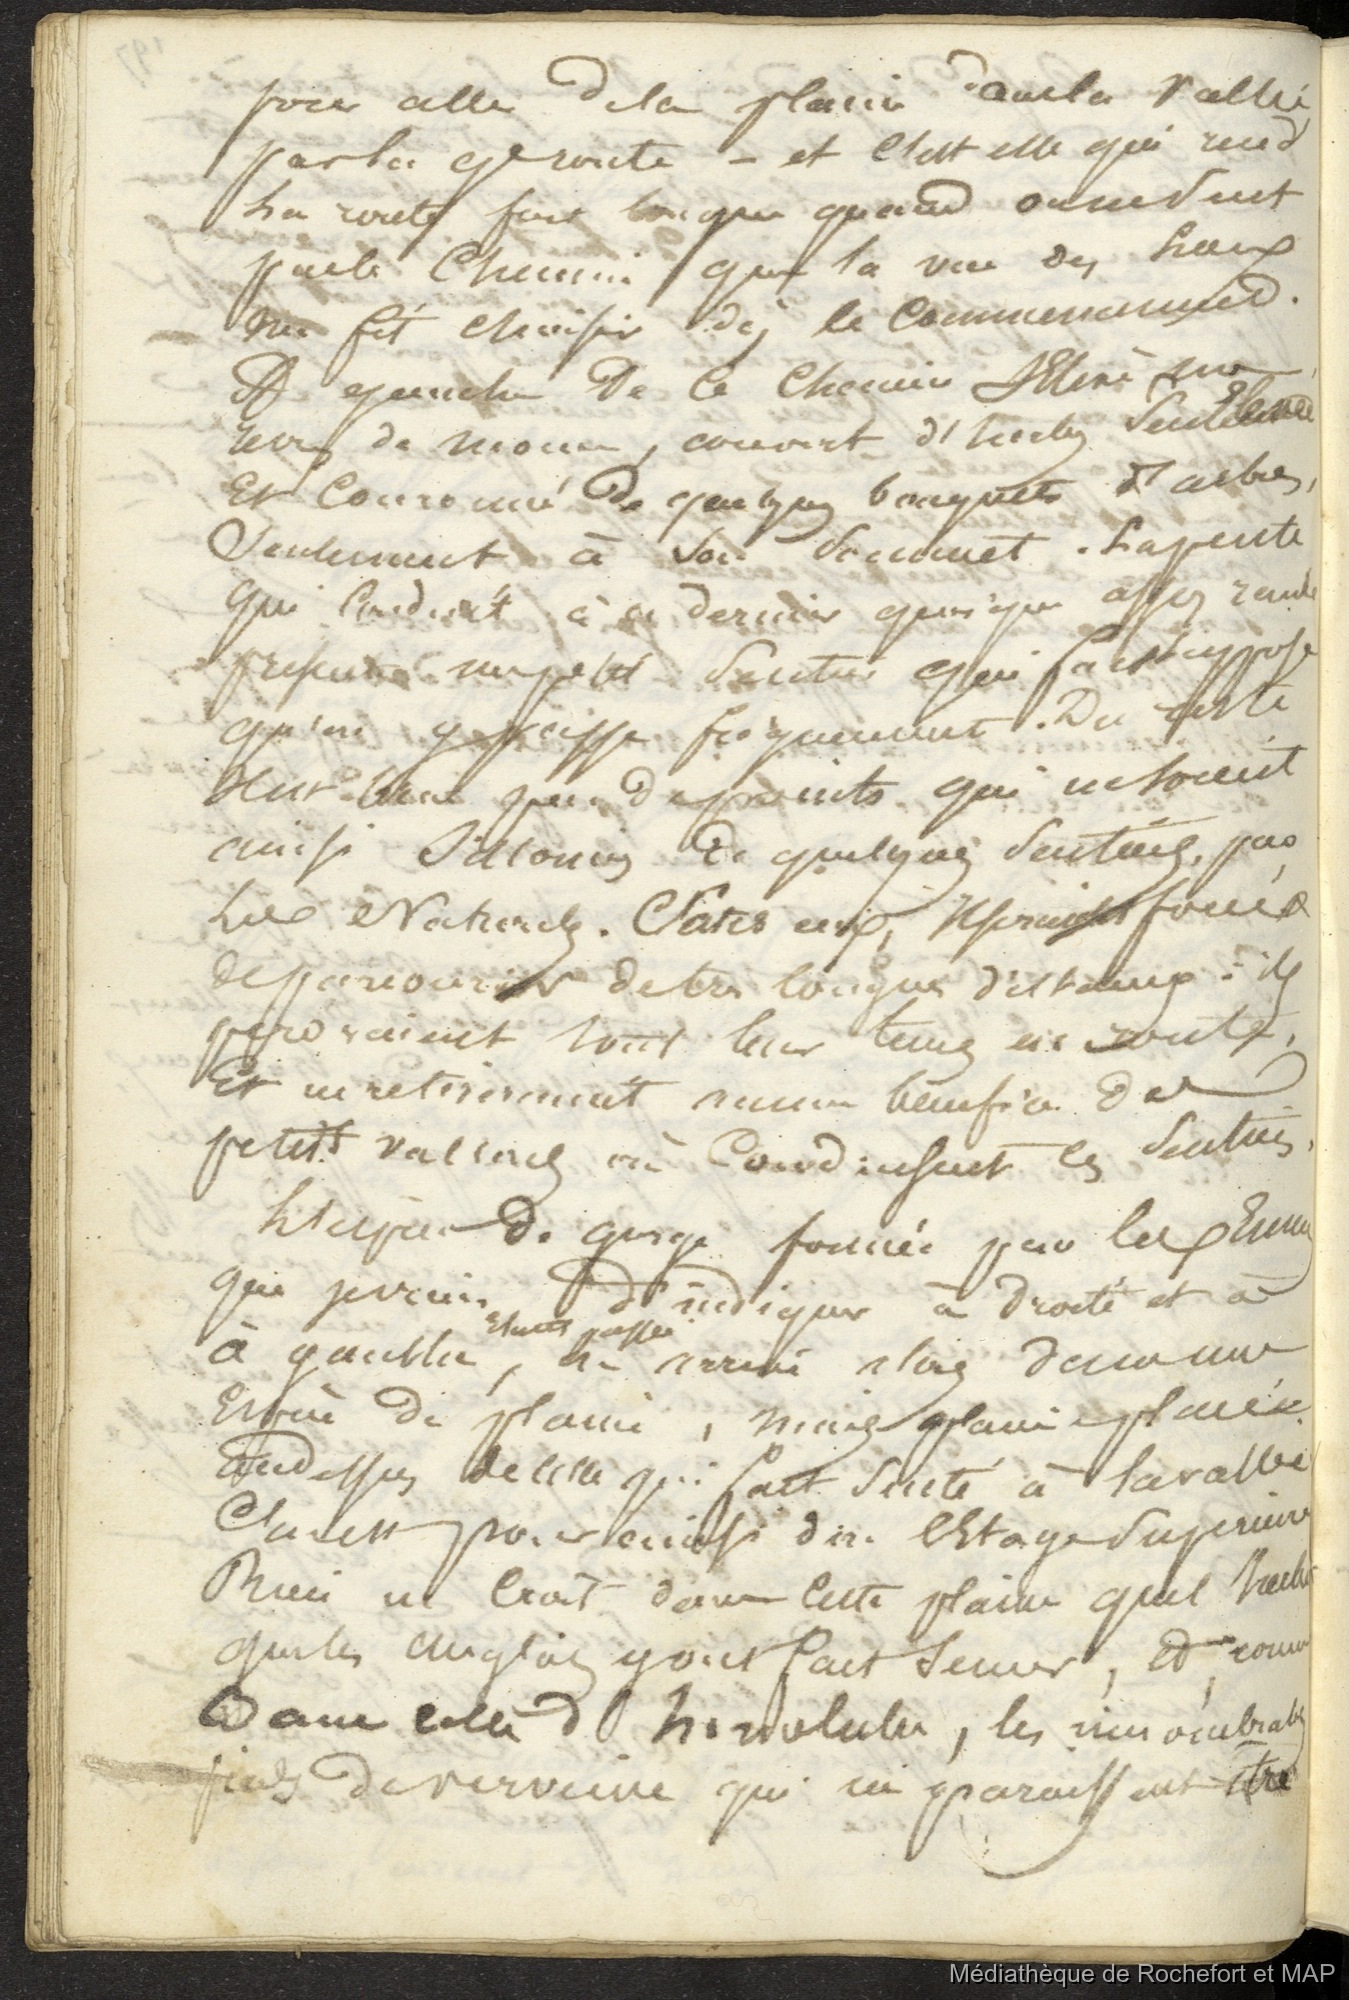 pour aller de la plaine dans la vallée
par la gde route – et c'est elle qui rend
La route fort longue quand on ne vient
par le Chemin que la vue des lieux
me fit choisir dès le Commencement.
A gauche de ce Chemin S'élève un
de morne, couvert d'herbes seulement
Et Couronné de quelques bouquets d'arbres,
Seulement à son sommet. La pente
qui Conduit à ce dernier quoique assez raide
présente un petit sentier qui fait suppose
qu'on y passe fréquemment. Du reste
Il est bien peu de points qui ne soient
ainsi Sillonés de quelques sentiers, par
Les Naturels. Sans eux, ils seraient forcés
de parcourir de très longues distances : ils
perdraient tout leur temps en route,
Et ne retireraient aucun bénéfice des
petits vallons où Conduisent les sentiers.
L'espèce de gorge formée par les
que je viens d'indiquer à droite et à
à gauche, Etant passée on arrive alors dans une
Espèce de plaine, mais plaine placée
au dessus de celle qui fait suite à la vallée
C'en est pour ainsi dire l'Etage Supérieur
Rien ne Croît dans Cette plaine que l'herbe
que les anglais y ont fait semer, Et, comme
Dans celle d'honolulu, les innombrables
pieds de verveine qui ici paraissent être